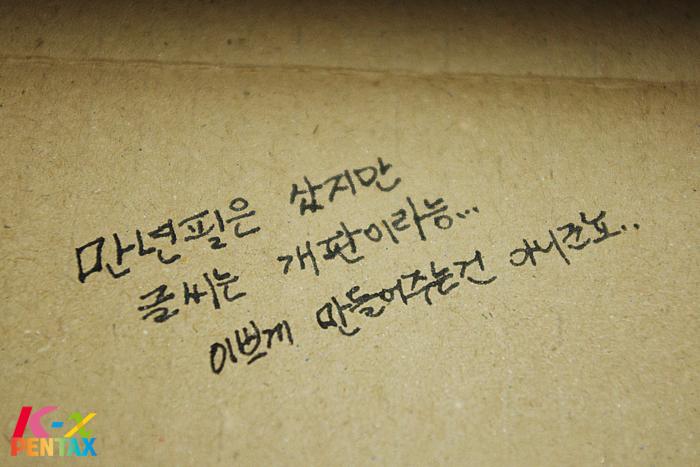 만년필은 샀지만
글씨는 개판이라능...
이쁘게 만들어주는건 아니곤뇨..
K-x
PENTAX